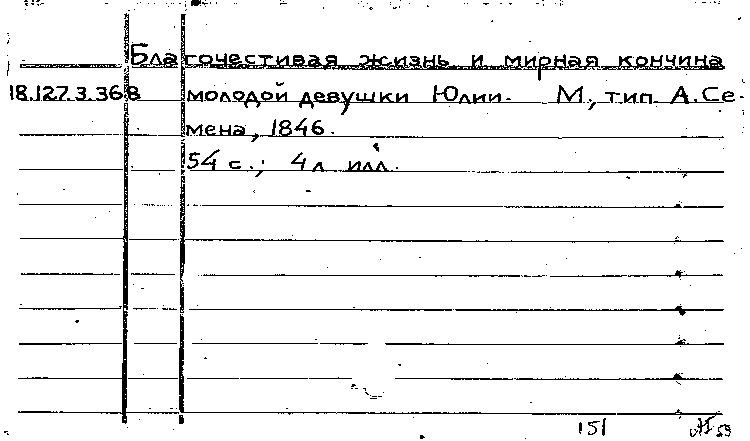 Благочестивая жизнь и мирная кончина
18.127.3.368 молодой девушки Юлии. М., тип. А. Се-
мена, 1846.
54 с.; 4 л илл.
151